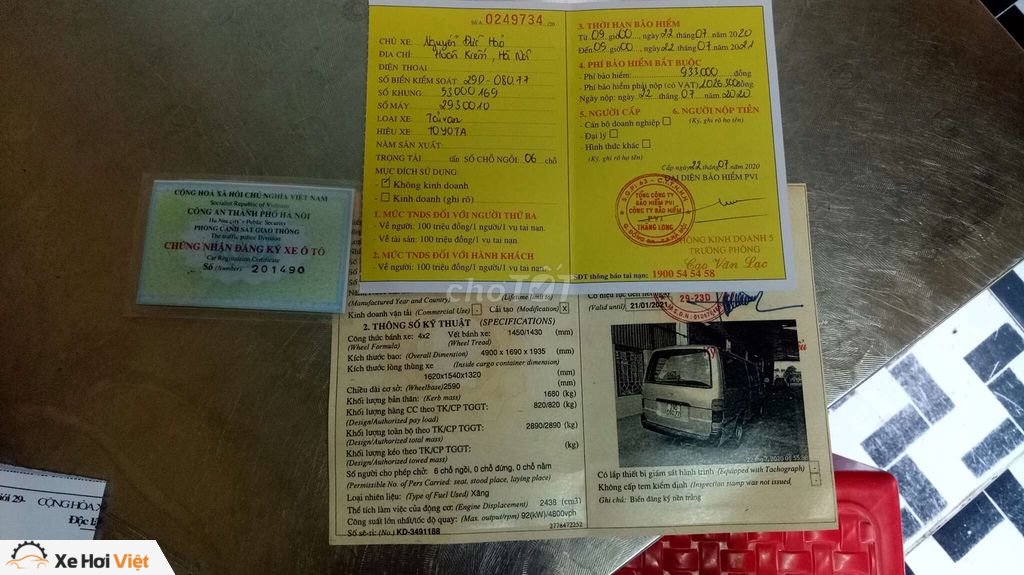 Số A 0249734 /20
CHỦ XE: Nguyễn Đức Hoà
ĐỊA CHỈ: Hoàn Kiếm, Hà Nội
ĐIỆN THOẠI
SỐ BIỂN KIỂM SOÁT: 29D-080.77
SỐ KHUNG: 53000169
SỐ MÁY: 2930010
LOẠI XE: Tải van
HIỆU XE: TOYOTA
NĂM SẢN XUẤT:
TRỌNG TẢI: tấn SỐ CHỖ NGỒI: 06 chỗ
MỤC ĐÍCH SỬ DỤNG:
- Không kinh doanh
- Kinh doanh (ghi rõ)
1. MỨC TNDS ĐỐI VỚI NGƯỜI THỨ BA
- Về người: 100 triệu đồng/1 người/1 vụ tai nạn.
- Về tài sản: 100 triệu đồng/1 vụ tai nạn.
2. MỨC TNDS ĐỐI VỚI HÀNH KHÁCH
- Về người: 100 triệu đồng/1 người/1 vụ tai nạn.
3. THỜI HẠN BẢO HIỂM
Từ 09 giờ 00, ngày 22 tháng 07 năm 2020
Đến 09 giờ 00, ngày 22 tháng 07 năm 2021
4. PHÍ BẢO HIỂM BẮT BUỘC
- Phí bảo hiểm: 933000 đồng
- Phí bảo hiểm phải nộp (có VAT) 1.026.300 đồng
Ngày nộp: ngày 22 tháng 07 năm 2020
5. NGƯỜI CẤP
- Cán bộ doanh nghiệp
- Đại lý
- Hình thức khác
(Ký, ghi rõ họ tên)
6. NGƯỜI NỘP TIỀN
(Ký, ghi rõ họ tên)
Cấp ngày 22 tháng 07 năm 2020
ĐẠI DIỆN BẢO HIỂM PVI
TỔNG CÔNG TY
BẢO HIỂM PVI
CÔNG TY BẢO HIỂM
PVI
THĂNG LONG
PHÒNG KINH DOANH 5
TRƯỞNG PHÒNG
Cao Văn Lạc
SĐT thông báo tai nạn: 1900 54 54 58
CỘNG HOÀ XÃ HỘI CHỦ NGHĨA VIỆT NAM
Socialist Republic of Vietnam
CÔNG AN THÀNH PHỐ HÀ NỘI
Ha Noi city's Public Security
PHÒNG CẢNH SÁT GIAO THÔNG
The traffic police Division
CHỨNG NHẬN ĐĂNG KÝ XE Ô TÔ
Car Registration Certificate
Số (Number): 201490
choTỐT
(Manufactured Year and Country) (Lifetime limit to)
Kinh doanh vận tải (Commercial Use) - Cải tạo (Modification) X
2. THÔNG SỐ KỸ THUẬT (SPECIFICATIONS)
Công thức bánh xe: 4x2 Vết bánh xe: 1450/1430 (mm)
(Wheel Formula) (Wheel Tread)
Kích thước bao: (Overall Dimension) 4900 x 1690 x 1935 (mm)
Kích thước lòng thùng xe (Inside cargo container dimension)
1620x1540x1320 (mm)
Chiều dài cơ sở: (Wheelbase) 2590 (mm)
Khối lượng bản thân: (Kerb mass) 1680 (kg)
Khối lượng hàng CC theo TK/CP TGGT: 820/820 (kg)
(Design/Authorized pay load)
Khối lượng toàn bộ theo TK/CP TGGT: 2890/2890 (kg)
(Design/Authorized total mass)
Khối lượng kéo theo TK/CP TGGT: (kg)
(Design/Authorized towed mass)
Số người cho phép chở: 6 chỗ ngồi, 0 chỗ đứng, 0 chỗ nằm
(Permissible No. of Pers Carried: seat, stood place, laying place)
Loại nhiên liệu: (Type of Fuel Used) Xăng
Thể tích làm việc của động cơ: (Engine Displacement) 2438 (cm3)
Công suất lớn nhất/tốc độ quay: (Max. output/rpm) 92(kW)/4800vph
Số sê-ri: (No.) KD-3491188 2778472252
Có hiệu lực đến hết ngày
(Valid until) 21/01/2021
29-23D
Có lắp thiết bị giám sát hành trình (Equipped with Tachograph) -
Không cấp tem kiểm định (Inspection stamp was not issued) -
Ghi chú: Biển đăng ký nền trắng
giỏi 29-
CỘNG HÒA X
Độc l
Xe Hơi Việt